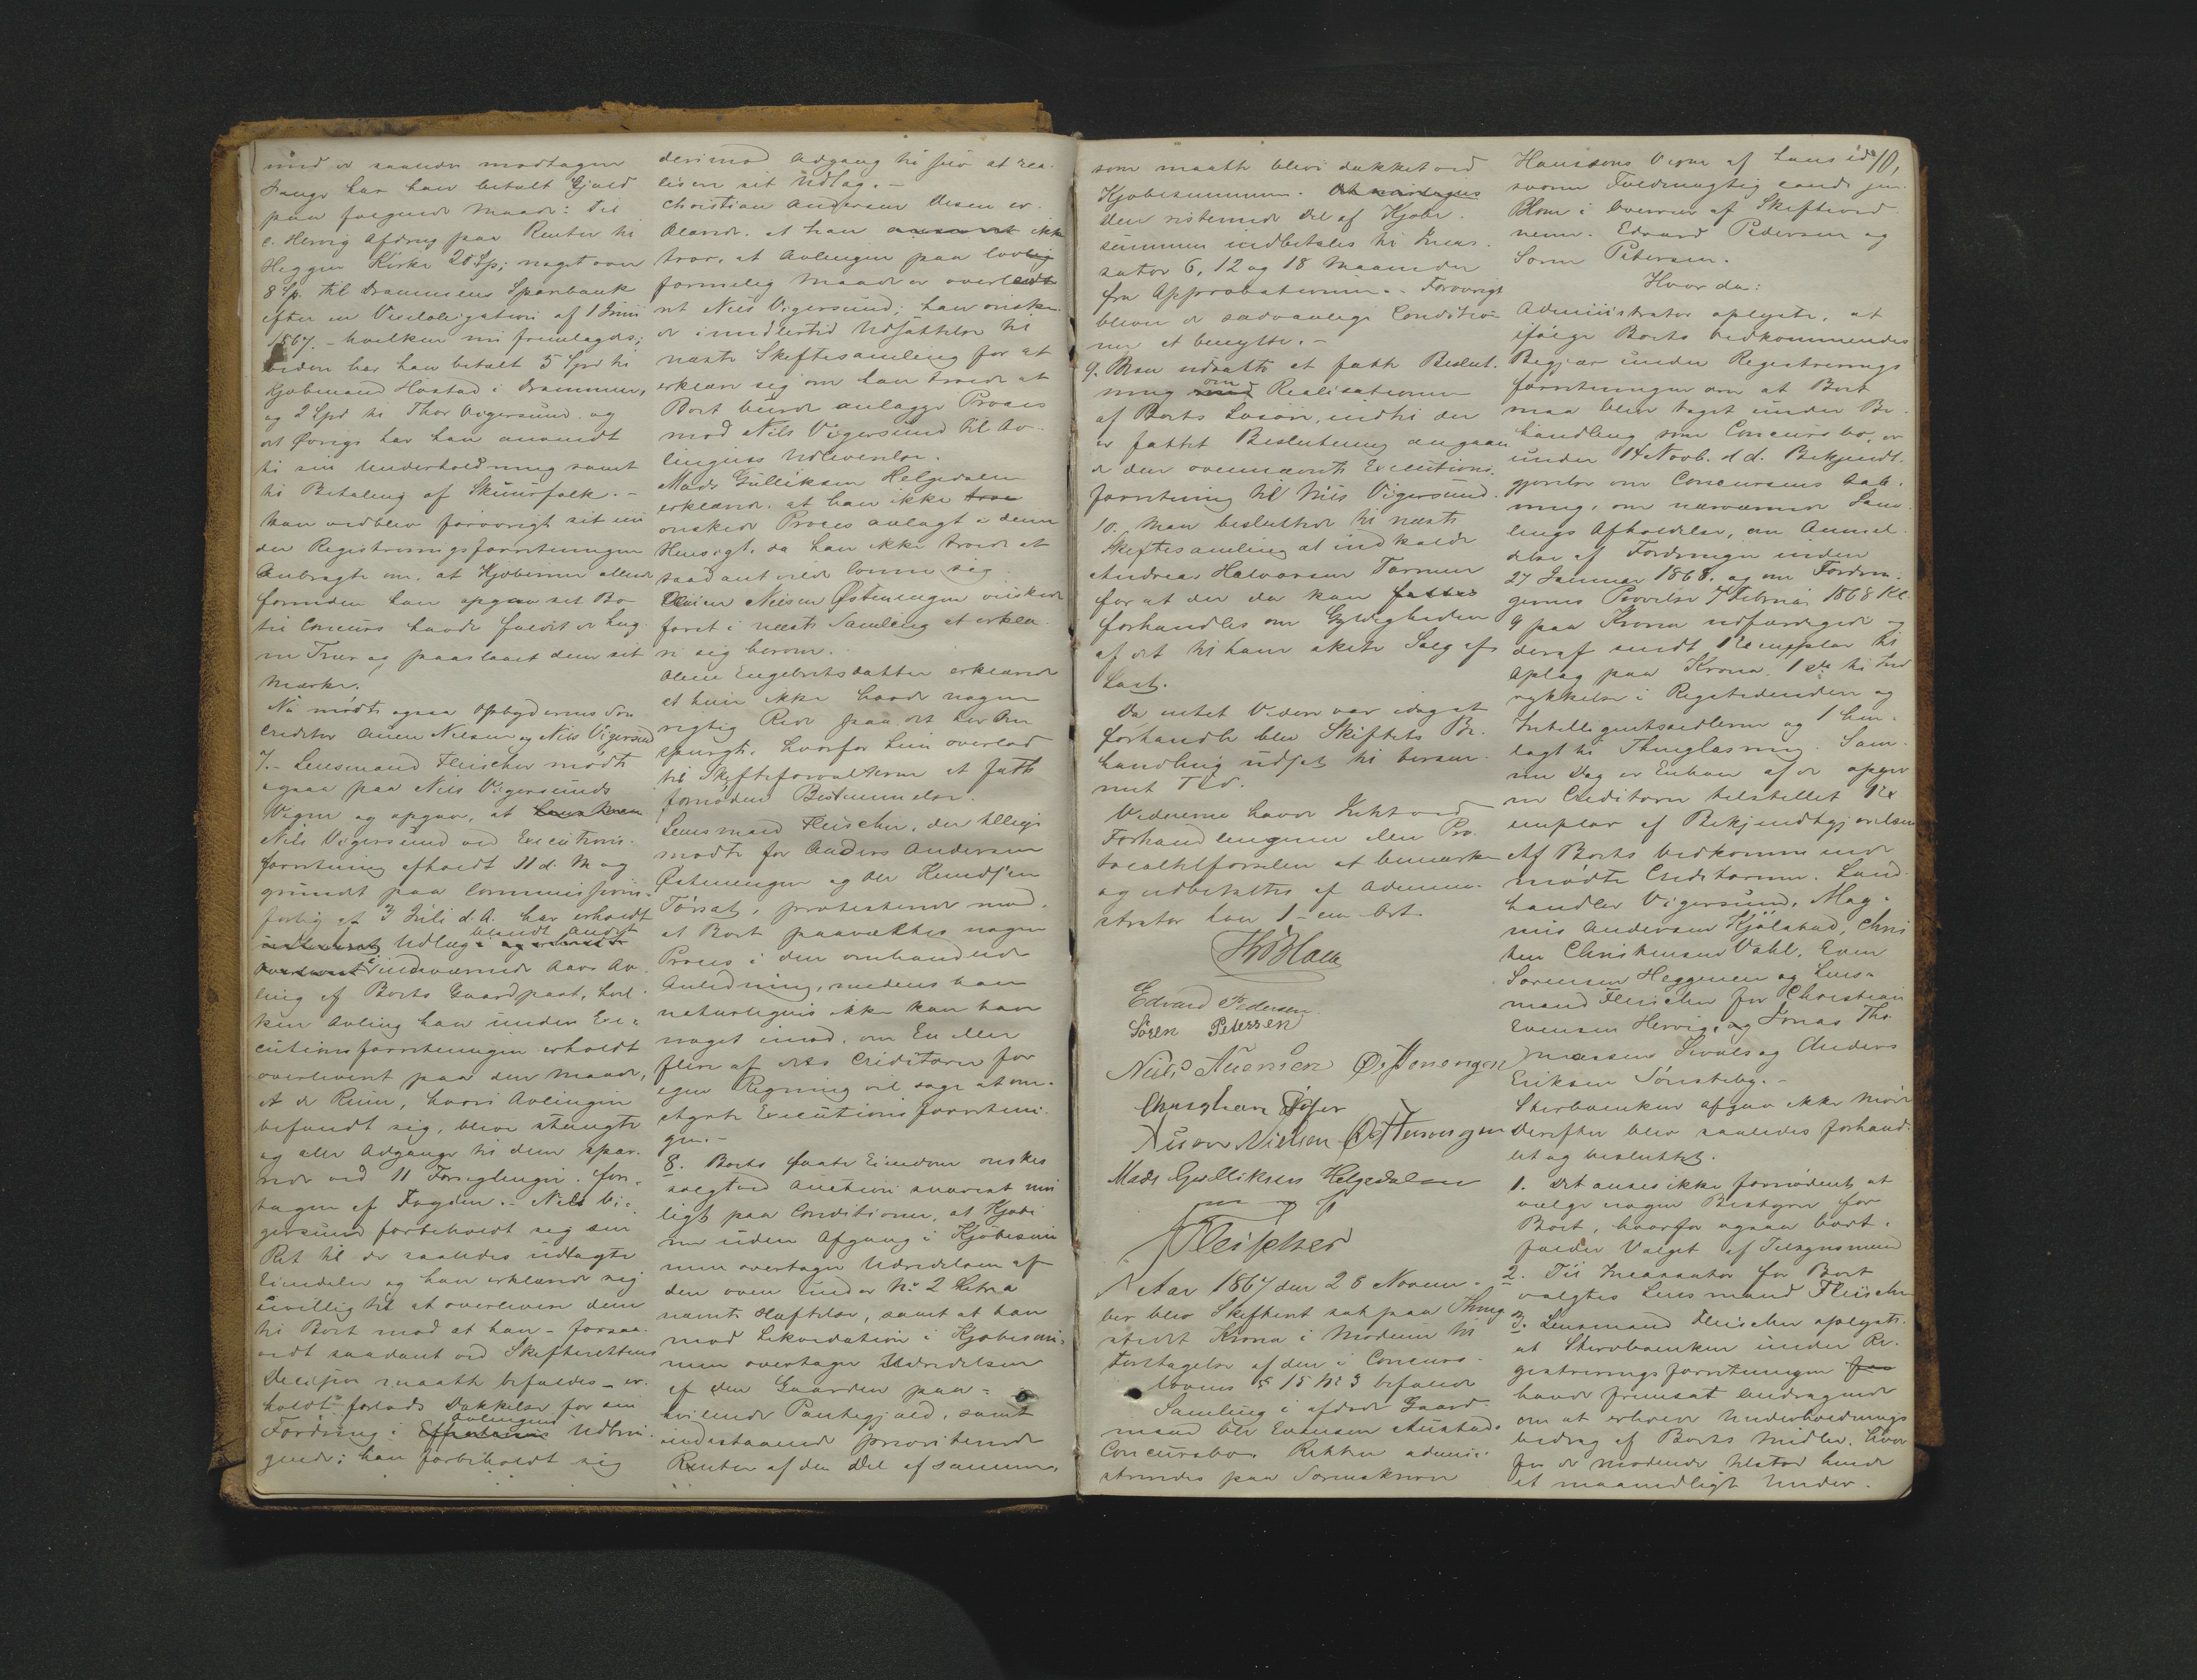 med er saaledes modtagne
Penge har han betalt Gjæld
paa følgende Maade: til
C. Hervig Afdrag paa Renter til
Heggen Kirke 20 Sp; noget over
8 Sp. til Drammens Sparebank
efter en Vexelobligation af 1 Juni
1867. – hvilken nu fremlagdes;
viden har han betalt 5 Spd til
Kjøbmand Hostad i Drammen,
og 2 Spd til Thor Vigersund og
det Øvrige har han anvendt
til sin Underholdning samt
til Betaling af Skuurfolk. –
han vedblev forøvrigt sit un
der Registreringsforretningen
Anbragte om, at Kjøberne allerede
forinden han opgav sit Bo
til Concurs havde fældet og hug
ne Træer og paaslaaet dem sit
Mærke.
Nu mødte ogsaa Opbyderens Søn
Creditor Auen Nielsen og Nils Vigersund
7. – Lensmand Fleischer mødte
ogsaa paa Nils Vigersunds
Vegne og opgav, at
Nils Vigersund ved Executions-
forretning afholdt 11 d. M og
grundet paa Commissions-
forlig af 3 Juli d. A. har erholdt
blandt Andet
Udlæg
i indeværende Aars Av
ling af Boets Gaardpart, hvil
ken Avling han under Exe-
cutionsforretningen erholdt
overleveret paa den Maade,
at de Rum, hvori Avlingen
befandt sig, bleve stængte
og alle Adgange til dem spær
rede ved 11 Forseglinger, fore-
tagne af Fogden. – Nils Vi-
gersund forbeholdt sig sin
Ret til de saaledes udlagte
Eiendele og han erklærede sig
uvillig til at overlevere dem
til Boet mod at han – forsaa-
vidt saadant ved Skifterettens
Decision maatte befales – er-
holdt forlods Dækkelse for sin
Avlingens
Fordring i Udbrin-
gende; han forbeholdt sig
derimod Adgang til selv at rea-
lisere sit Udlæg. –
Christian Andersen Disen er-
klærede, at han ikke
tror, at Avlingen paa lovlig
formelig Maade er overladt
til Nils Vigersund; han ønske-
de imidlertid Udsættelse til
næste Skiftesamling for at
erklære sig om han troede at
Boet burde anlægge Proces
mod Nils Vigersund til Av-
lingens Udlevering.
Mads Gulliksen Helgedalen
erklærede, at han ikke
ønskede Proces anlagt i denne
Hensigt, da han ikke troede at
saadant vilde lønne sig
Nielsen Østenengen ønskede
først i næste Samling at erklæ-
re sig herom.
Engebretsdatter erklærede
at hun ikke havde nogen
rigtig Rede paa det her Om
spurgte, hvorfor hun overlod
til Skifteforvalteren at fatte
fornøden Bestemmelse.
Lensmand Fleischer, der tillige
mødte for Anders Andersen
Østenengen og Ole Knudsen
, protesterede mod,
at Boet paavæltes nogen
Proces i den omhandlede
Anledning, medens han
naturligvis ikke kan have
noget imod, om En eller
flere af disse Creditorer for
egen Regning vil søge at om-
styrte Executionsforretnin
gen. –
8. Boets faste Eiendom ønskes
solgt ved Auction snarest mu
ligt paa Conditioner, at Kjøbe
ren uden Afgang i Kjøbesum
men overtager Udredelsen af
den oven under No 2 Litra
nævnte Heftelse, samt at han
mod Likvidation i Kjøbesum-
men overtager Udredelsen
af den Gaarden paa-
hvilende Pantegjæld, samt
indestaaende prioriterede
Renter af den Del af samme,
som maatte blive dækket ved
Kjøbesummen.
Den resterende Del af Kjøbe-
summen indbetales til Incas-
sator 6, 12 og 18 Maaneder
fra Approbationen. – Forøvrigt
bliver de sædvanlige Conditio-
ner at benytte. –
9. Man udsatte at fatte Beslut-
om
ning Realisationen
af Boets Løsøre, indtil der
er fattet Beslutning angaaen
de den ovennævnte Executions-
forretning til Nils Vigersund.
10. Man besluttede til næste
Skiftesamling at indkalde
Andreas Halvorsen
for at der da kan
forhandles om Gyldigheden
af det til ham skete Salg af
Last.
Da intet Videre var idag at
forhandle blev Skiftets Be-
handling udsat til beram-
met Tid.
Vidnerne havde Intet ved
Forhandlingerne eller Pro-
tocoltilførselen at bemærke
og udbetaltes af Admini-
strator hver 1 – een Ort.
Edvard Pedersen
Sören Petersen
Niels Auensen Østenengen
Auen Nielsen Østenengen
Mads Gulliksen Helgedalen
m. f. P.
Fleischer
Aar 1867 den 26 Novem-
ber blev Skifteret sat paa Thing
stedet Krona i Modum til
Foretagelse af den i Concurs-
lovens § 15 No 3 befalede
Samling i afdøde Gaard-
mand Ole Evensen
Concursbo. Retten admini-
streredes paa Sorenskriver
10.
Hansens Vegne af hans ed-
svorne Fuldmægtig cand. jur.
Blom i Overvær af Skiftevid
nerne. Edvard Pedersen og
Søren Petersen.
Hvor da:
Administrator oplyste, at
ifølge Boets Vedkommendes
Begjær under Registrerings
forretningen om at Boet
maa blive taget under Be-
handling som Concursbo, er
under 14 Novb. d. A. Bekjendt-
gjørelse om Concursens Aab-
ning, om nærværende Sam-
lings Afholdelse, om Anmel-
delse af Fordringer inden
27 Januar 1868. og om Fordrin-
gernes Prøvelse 7 Februar 1868 Kl.
9 paa Krona udfærdiget og
deraf sendt 1 Exemplar til
Opslag paa Krona, 1 do til Ind
rykkelse i Rigstidenden og
Intelligentssedlerne og 1 hen-
lagt til Thinglæsning. Sam-
me Dag er Enhver af de opgiv
ne Creditorer tilstillet 1 Ex
emplar af Bekjendtgjørelsen
Af Boets Vedkommende
mødte Creditorerne. Land
handler Vigersund, Mag-
nus Andersen Kjølstad, Chris
ten Christensen Vahl. Even
Sørensen Heggenen og Lens-
mand Fleischer for Christian
Evensen Hervig, og Jonas Tho
massen og Anders
Eriksen Sønsteby. –
Sterboenken afgav ikke Møde
Derefter blev saaledes forhand-
let og besluttet.
1. Det ansees ikke fornødent at
vælge nogen Bestyrer for
Boet, hvorfor ogsaa bort-
falder Valget af Tilsynsmænd
2. Til Incassator for Boet
valgtes Lensmand Fleischer
3. Lensmand Fleischer oplyste
at Sterboenken under Re-
gistreringsforretningen
havde fremsat Andragende
om at erholde Underholdnings
bidrag af Boets Midler, hvor
for de Mødende tilstod hende
et maanedligt Under-